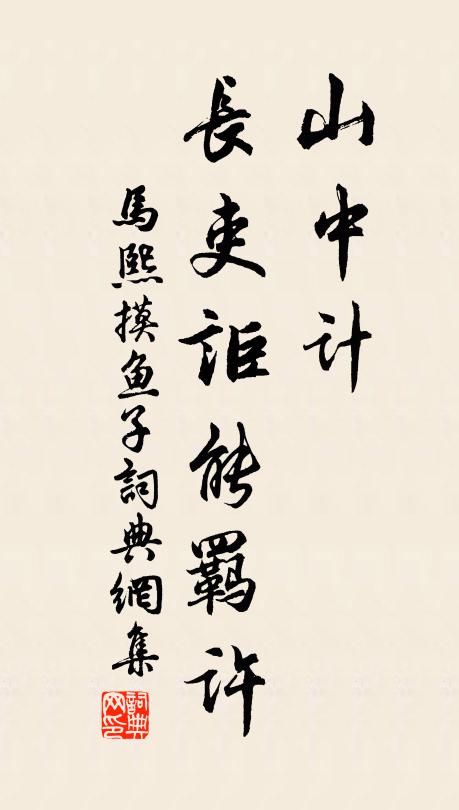 山中计
長吏詎能羁許
馬熙摸鱼子詞典網集
詞典网印